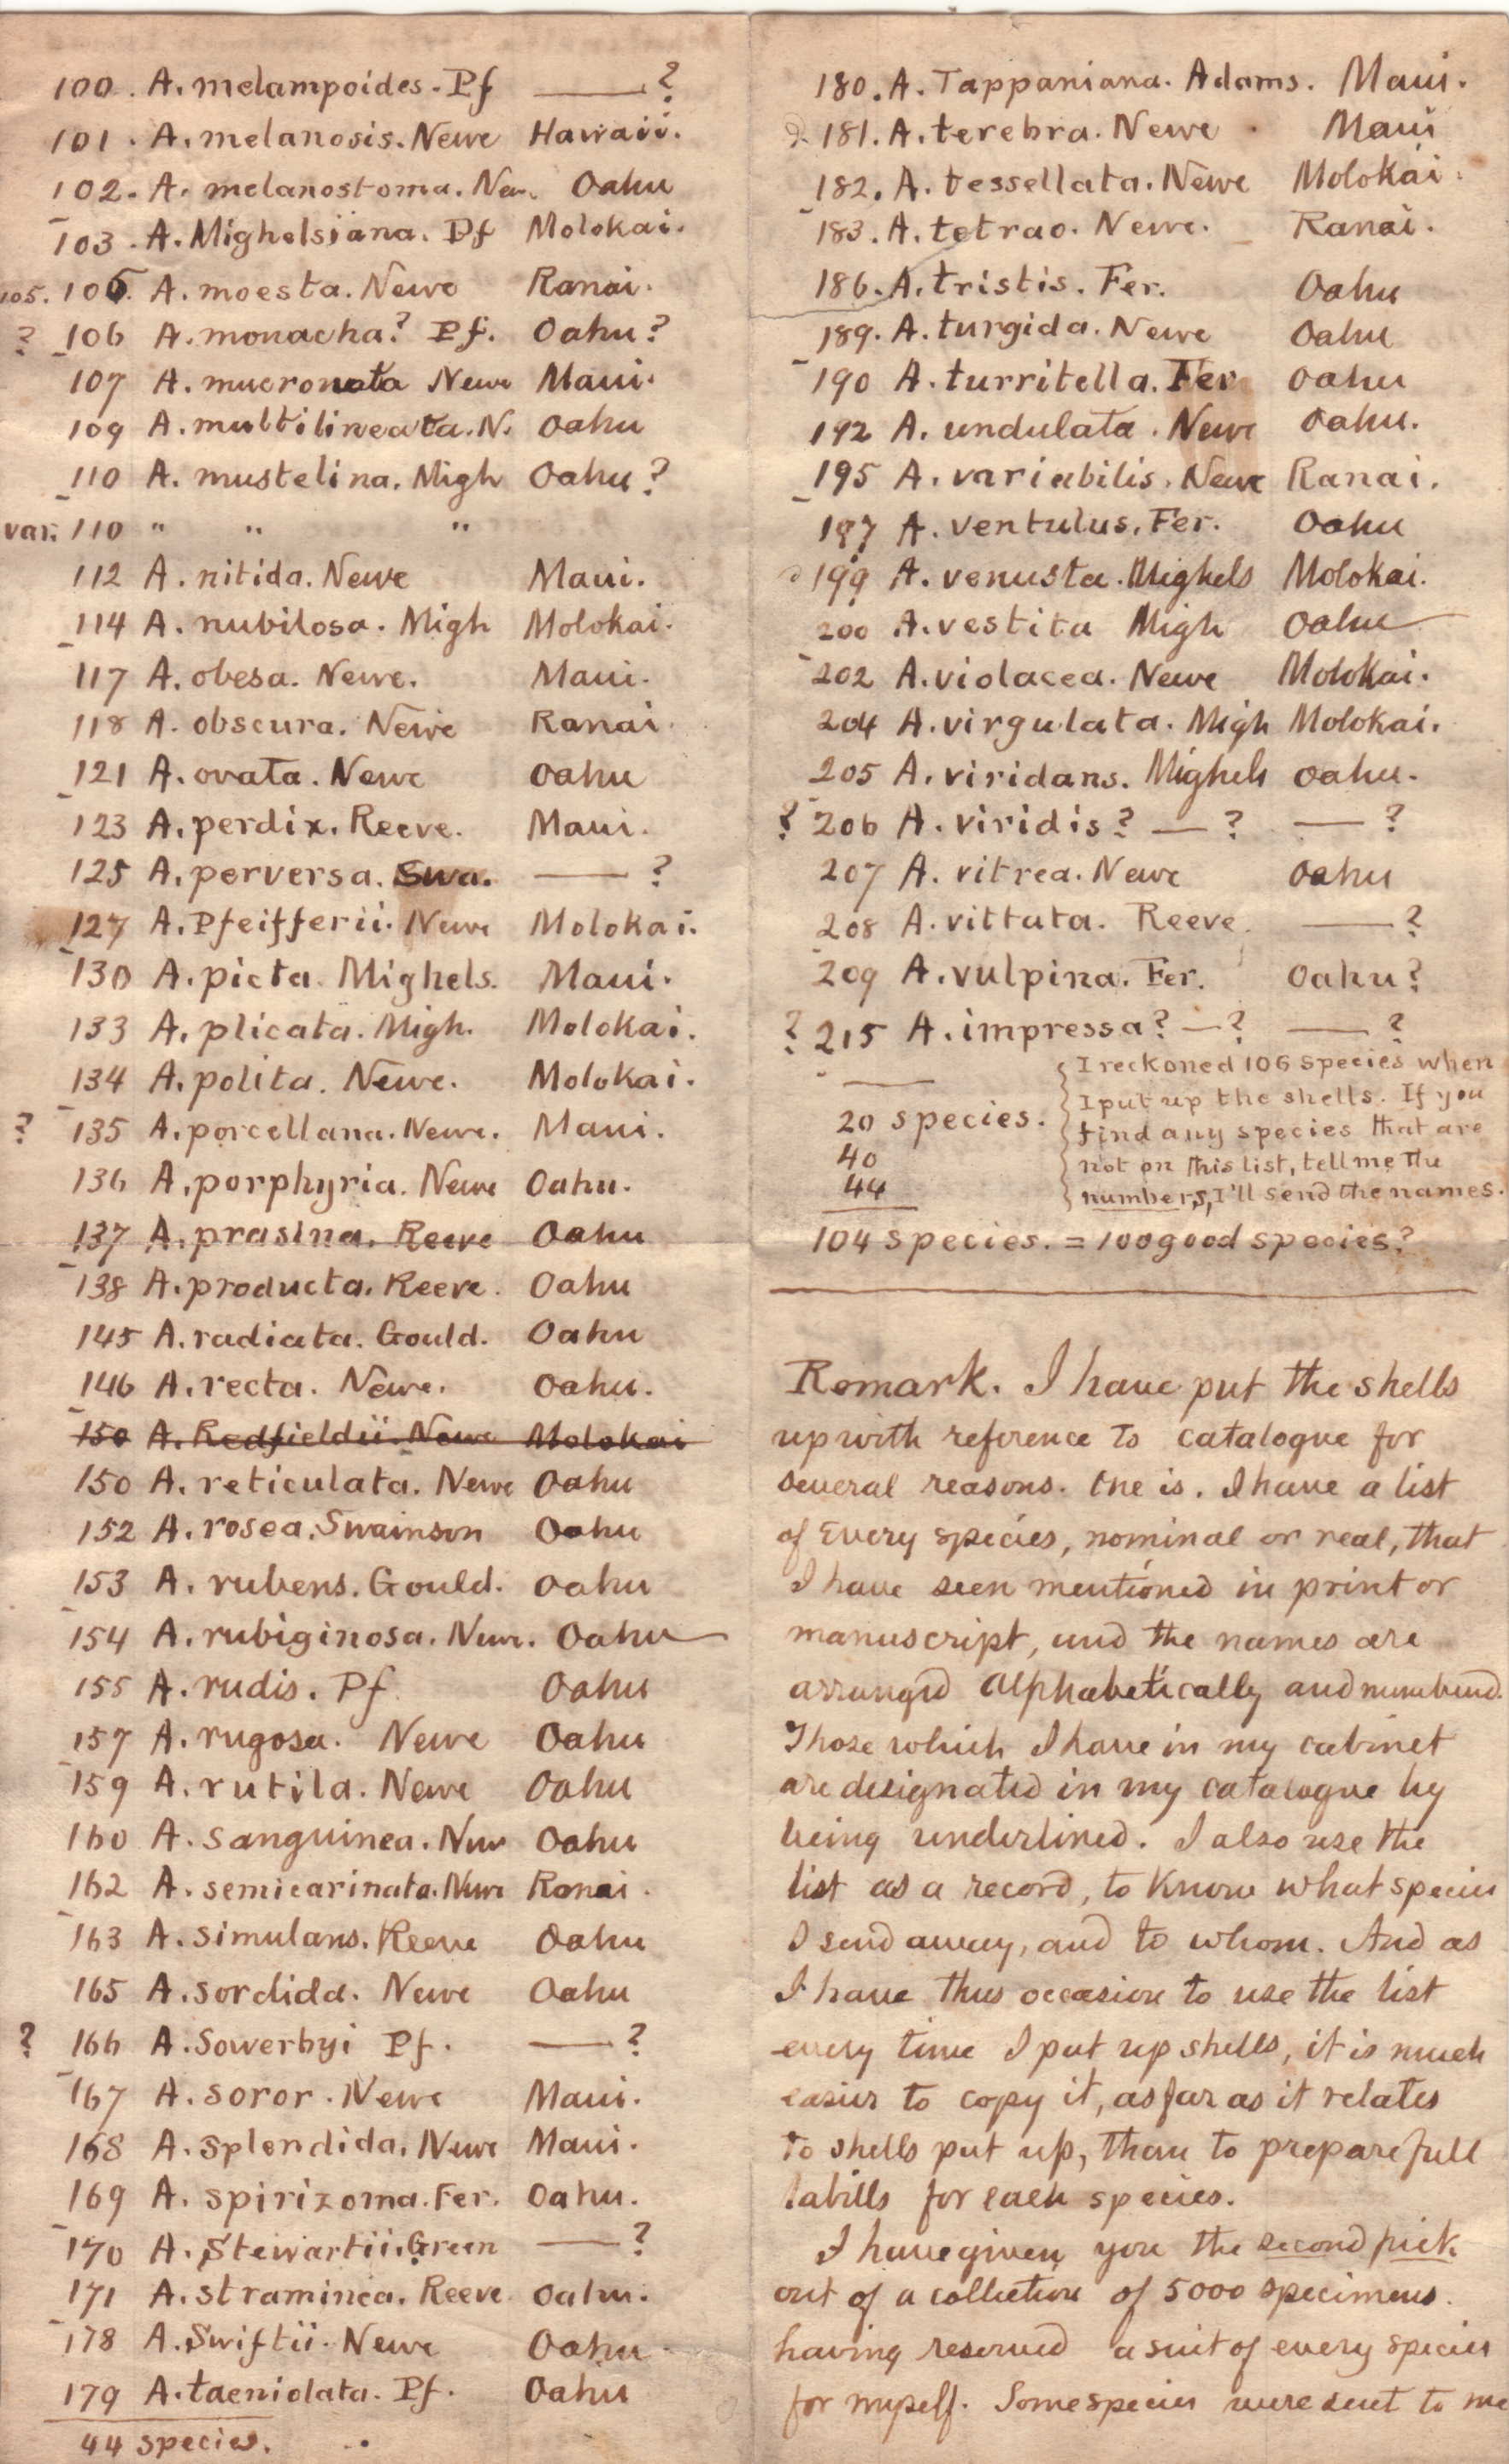 100. A. melampoides. Pf —— ?
101. A. melanosis. Newc Hawaii.
102. A. melanostoma. New. Oahu
103. A. Mighelsiana. Pf Molokai.
105. 105. A. moesta. Newc Ranai.
? 106 A. monacha? Pf. Oahu?
107 A. mucronata Newc Maui.
109 A. multilineata. N. Oahu
110 A. mustelina. Migh Oahu?
var. 110 " " "
112 A. nitida. Newc Maui.
114 A. nubilosa. Migh Molokai.
117 A. obesa. Newc. Maui.
118 A. obscura. Newc Ranai.
121 A. ovata. Newc Oahu
123 A. perdix. Reeve. Maui.
125 A. perversa. Swa. —— ?
127 A. Pfeifferii. Newc Molokai.
130 A. picta. Mighels. Maui.
133 A. plicata. Migh. Molokai.
134 A. polita. Newc. Molokai.
? 135 A. porcellana. Newc. Maui.
136 A. porphyria. Newc Oahu.
137 A. prasina. Reeve Oahu
138 A. producta. Reeve. Oahu
145 A. radiata. Gould. Oahu
146 A. recta. Newc. Oahu.
150 A. Redfieldii. Newc Molokai
150 A. reticulata. Newc Oahu
152 A. rosea. Swainson Oahu
153 A. rubens. Gould. Oahu
154 A. rubiginosa. Newc. Oahu
155 A. rudis. Pf. Oahu
157 A. rugosa. Newc Oahu
159 A. rutila. Newc Oahu
160 A. sanguinea. New Oahu
162 A. semicarinata. Newc Ranai.
163 A. simulans. Reeve Oahu
165 A. sordida. Newc Oahu
? 166 A. Sowerbyi Pf. —— ?
167 A. soror. Newc Maui.
168 A. splendida. Newc Maui.
169 A. spirizoma. Fer. Oahu.
170 A. Stewartii. Green —— ?
171 A. straminea. Reeve Oahu.
178 A. Swiftii. Newc Oahu
179 A. taeniolata. Pf. Oahu
44 species.
180. A. Tappaniana. Adams. Maui.
181. A. terebra. Newc. Maui
182. A. tessellata. Newc Molokai.
183. A. tetrao. Newc. Ranai.
186. A. tristis. Fer. Oahu
189. A. turgida. Newc Oahu
190 A. turritella. Fer Oahu
192 A. undulata. Newc Oahu.
195 A. variabilis. Newc Ranai.
197 A. ventulus. Fer. Oahu
199 A. venusta. Mighels Molokai.
200 A. vestita Migh Oahu
202 A. violacea. Newc Molokai.
204 A. virgulata. Migh Molokai.
205 A. viridans. Mighels Oahu.
? 206 A. viridis? — ? — ?
207 A. vitrea. Newc Oahu
208 A. vittata. Reeve. —— ?
209 A. vulpina. Fer. Oahu?
? 215 A. impressa? — ? —— ?
20 species.
40
44
I reckoned 106 species when
I put up the shells. If you
find any species that are
not on this list, tell me the
numbers, I'll send the names.
104 species. = 100 good species?
Remark. I have put the shells
up with reference to catalogue for
several reasons. One is. I have a list
of Every species, nominal or real, that
I have seen mentioned in print or
manuscript, and the names are
arranged alphabetically and numbered.
Those which I have in my cabinet
are designated in my catalogue by
being underlined. I also use the
list as a record, to know what species
I send away, and to whom. And as
I have thus occasion to use the list
every time I put up shells, it is much
easier to copy it, as far as it relates
to shells put up, than to prepare full
labills for each species.
I have given you the second pick
out of a collection of 5000 specimens.
having reserved a suit of every species
for myself. Some species were sent to me